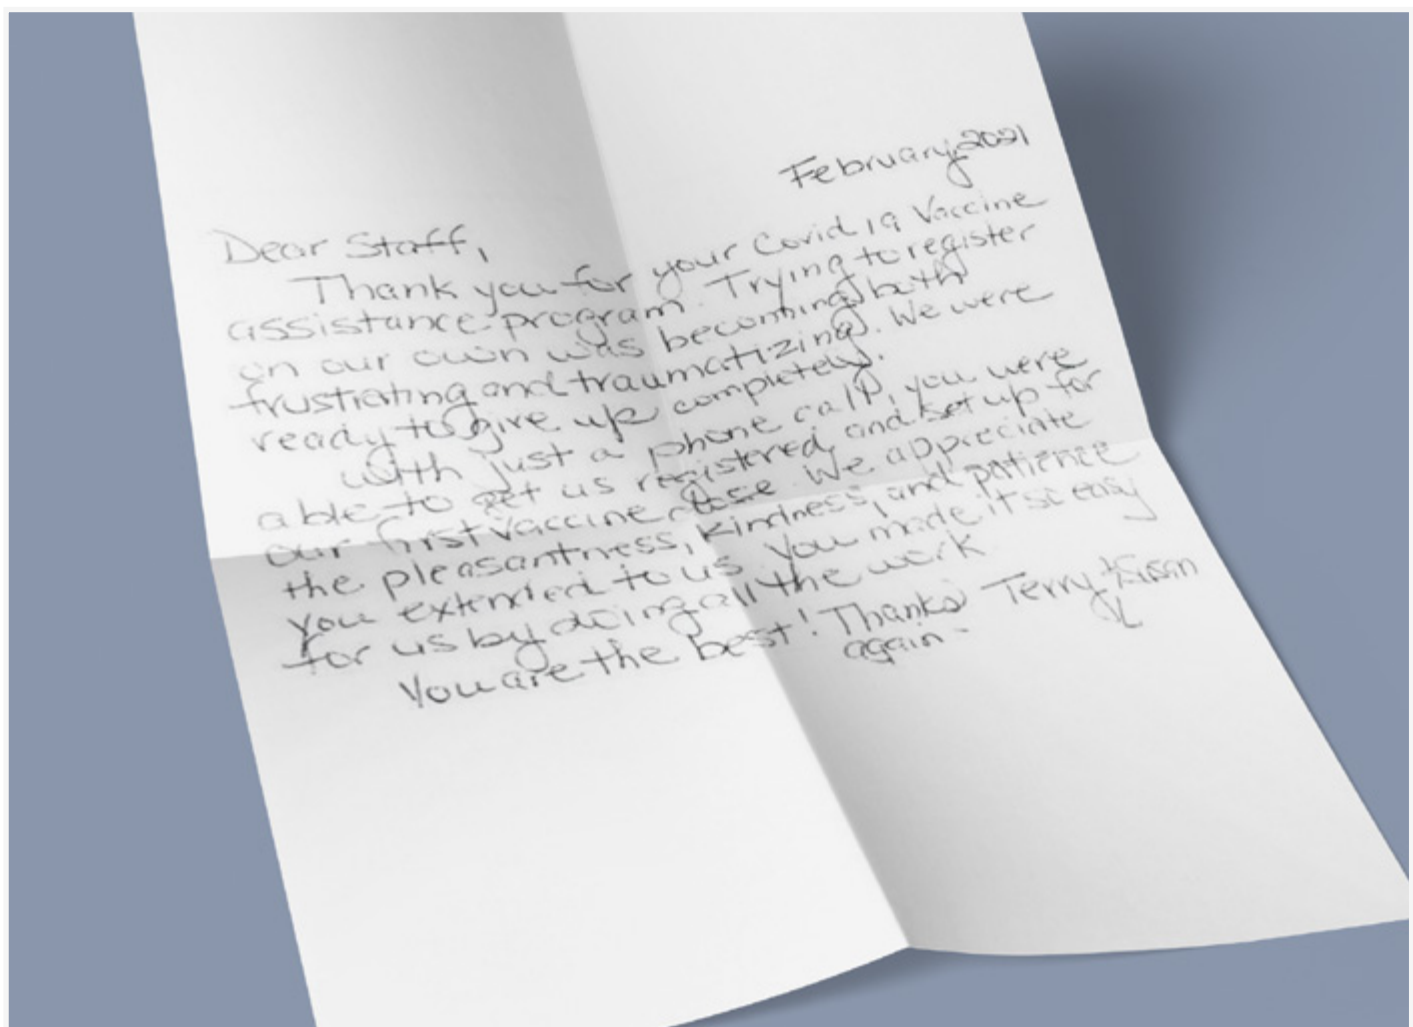 February 2021
Dear Staff,
Thank you for your Covid 19 Vaccine
assistance program. Trying to register
on our own was becoming both
frustrating and traumatizing. We were
ready to give up completely.
With just a phone call, you were
able to get us registered, and set up for
our first vaccine dose. We appreciate
the pleasantness, kindness, and patience
you extended to us. You made it so easy
for us by doing all the work.
You are the best! Thanks again -
Terry & Susan
L